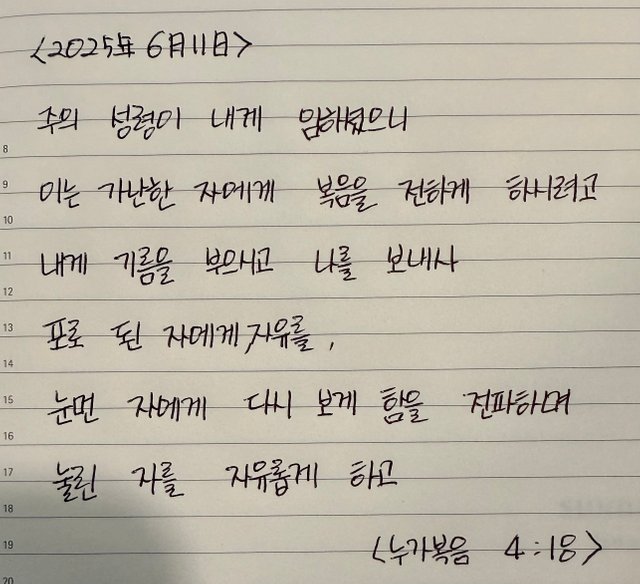 <2025年 6月11日>
주의 성령이 내게 임하셨으니
이는 가난한 자에게 복음을 전하게 하시려고
내게 기름을 부으시고 나를 보내사
포로 된 자에게 자유를,
눈먼 자에게 다시 보게 함을 전파하며
눌린 자를 자유롭게 하고
<누가복음 4:18>
8
9
10
11
12
13
14
15
16
17
18
19
20